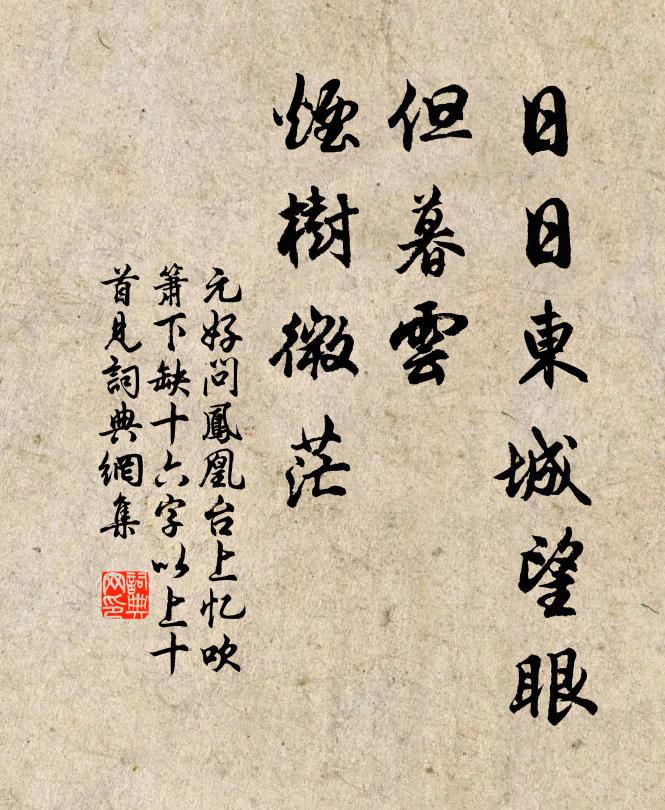 日日東城望眼
但暮雲
煙樹微茫
元好問鳳凰台上忆吹
簫下缺十六字以上十
首見詞典網集
詞典
网印